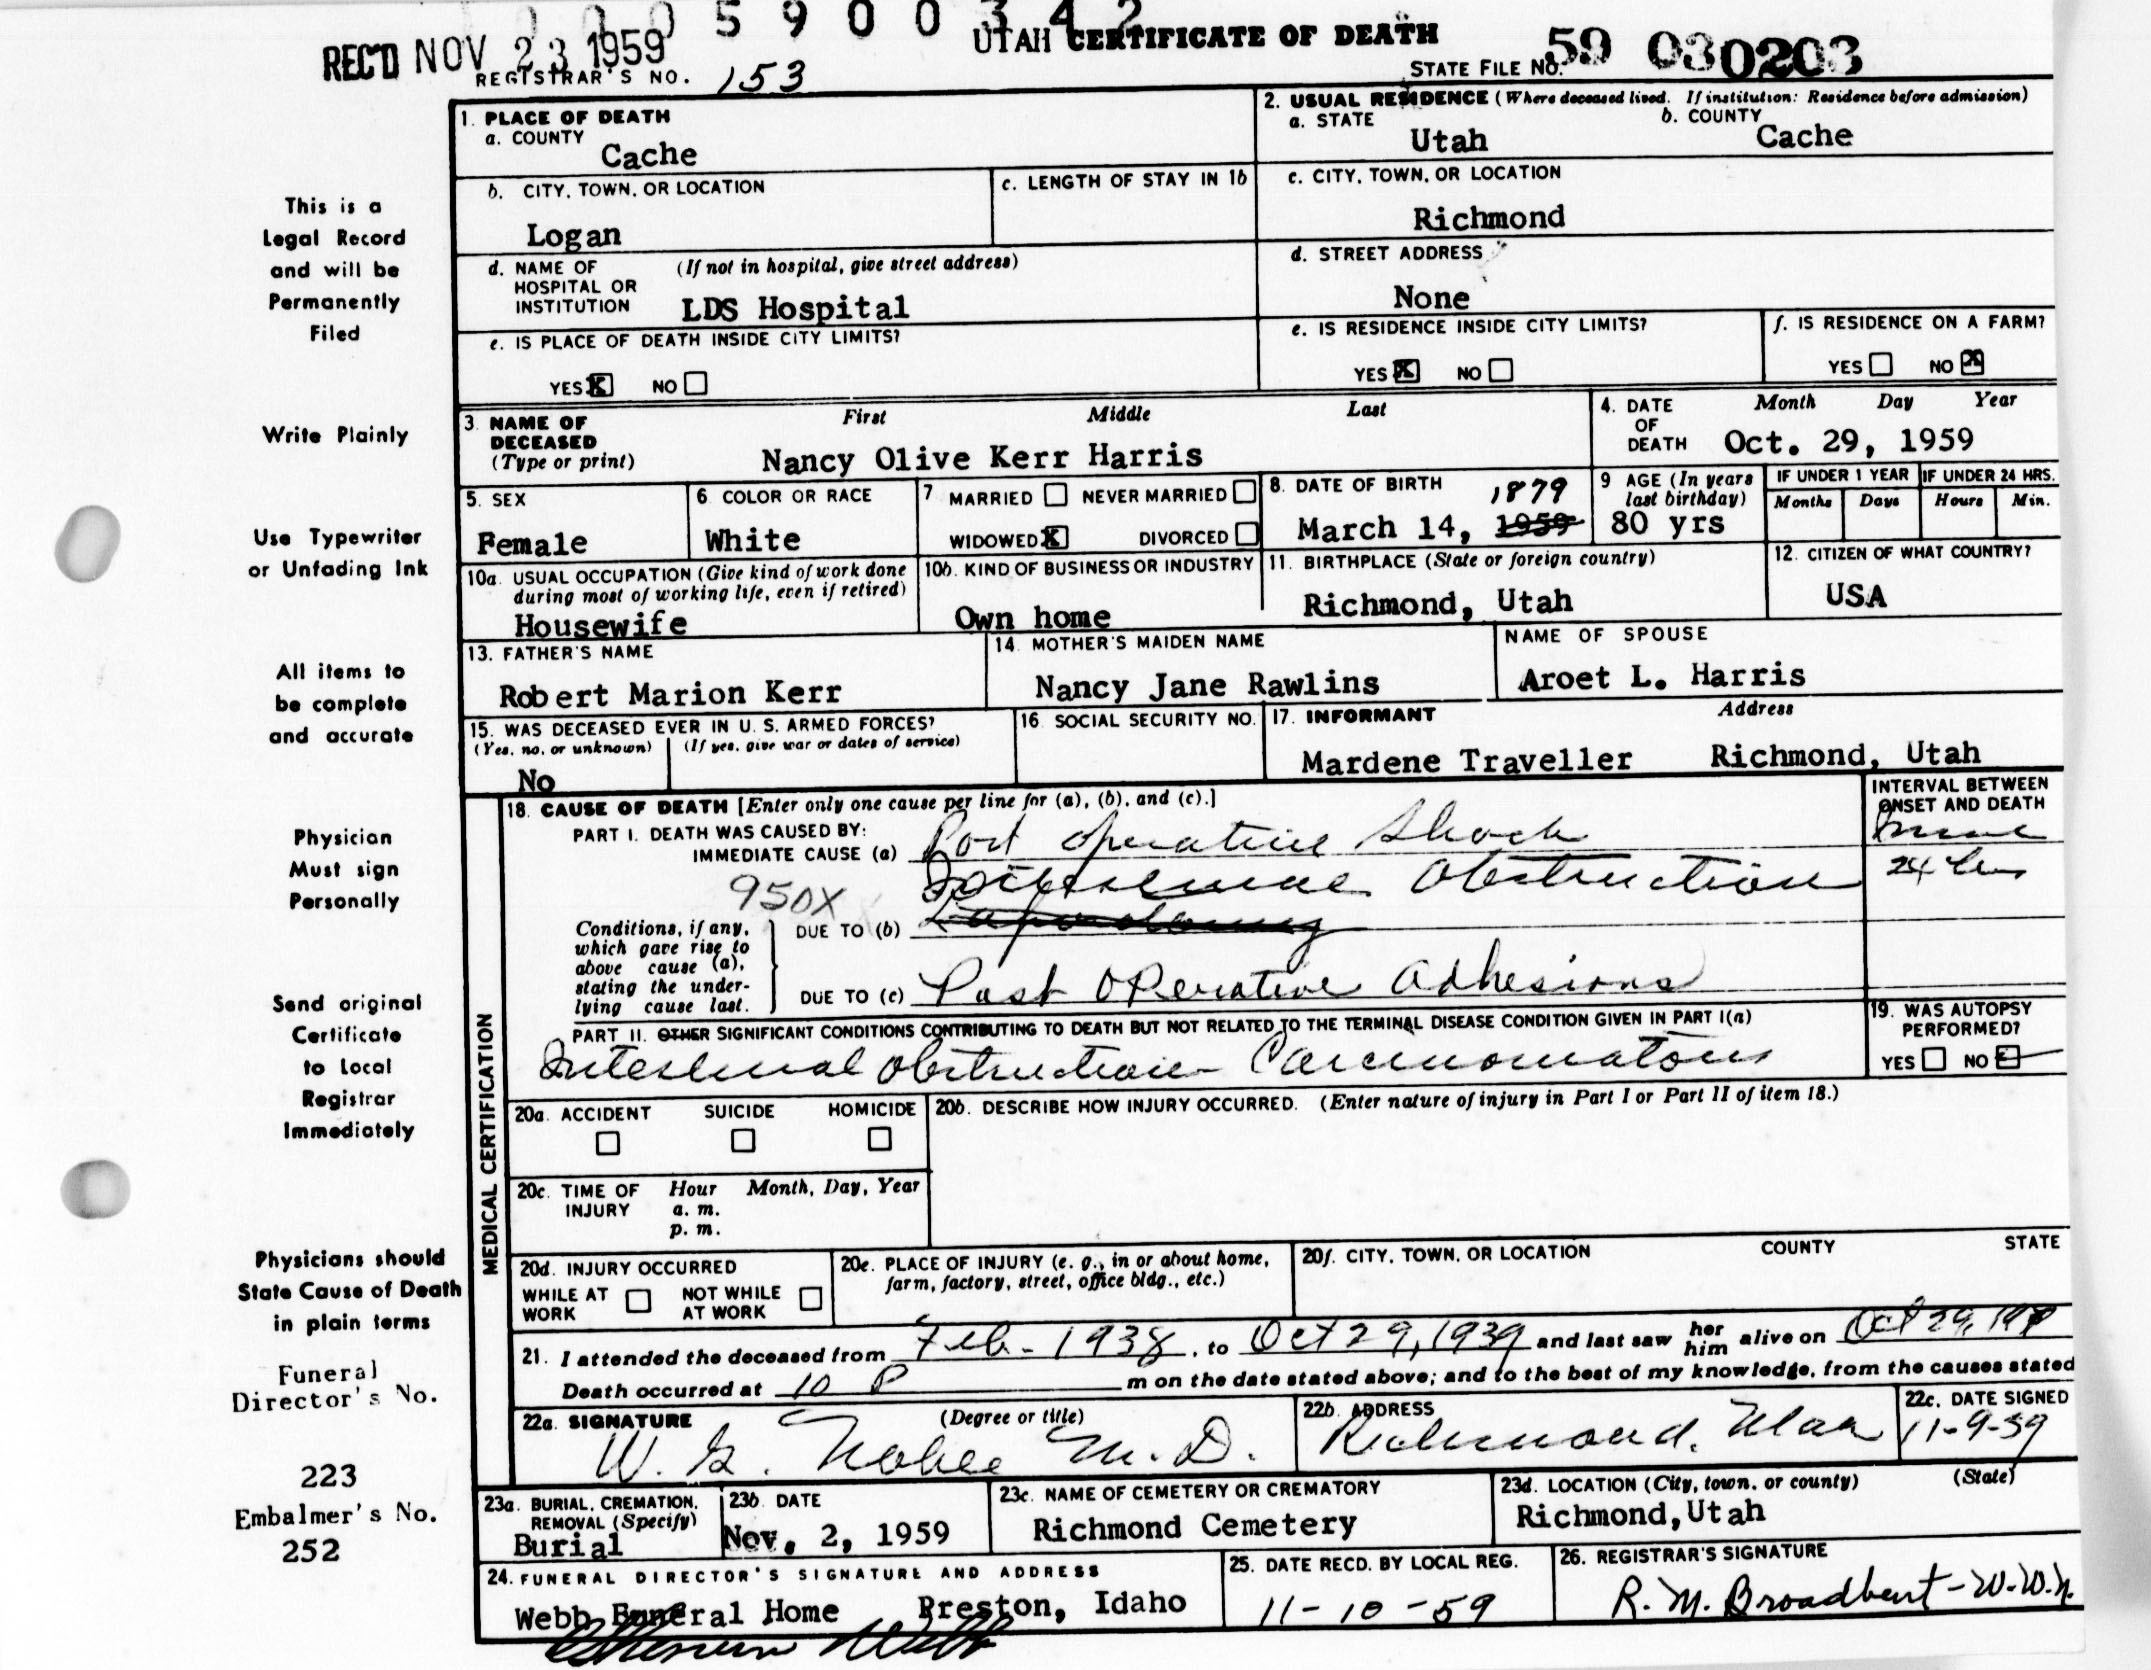 0005900342
REC'D NOV 23 1959
UTAH CERTIFICATE OF DEATH
REGISTRAR'S NO. 153
STATE FILE NO. 59 030203
1. PLACE OF DEATH
a. COUNTY
Cache
2. USUAL RESIDENCE (Where deceased lived. If institution: Residence before admission)
a. STATE
Utah
b. COUNTY
Cache
b. CITY, TOWN, OR LOCATION
Logan
c. LENGTH OF STAY IN 1b
c. CITY, TOWN, OR LOCATION
Richmond
d. NAME OF HOSPITAL OR INSTITUTION
(If not in hospital, give street address)
LDS Hospital
d. STREET ADDRESS
None
e. IS PLACE OF DEATH INSIDE CITY LIMITS?
YES X NO
e. IS RESIDENCE INSIDE CITY LIMITS?
YES X NO
f. IS RESIDENCE ON A FARM?
YES NO X
3. NAME OF DECEASED (Type or print)
First Middle Last
Nancy Olive Kerr Harris
4. DATE OF DEATH
Month Day Year
Oct. 29, 1959
5. SEX
Female
6. COLOR OR RACE
White
7 MARRIED NEVER MARRIED
WIDOWED X DIVORCED
8. DATE OF BIRTH
1879
March 14, 1959
9 AGE (In years last birthday)
80 yrs
IF UNDER 1 YEAR
Months Days
IF UNDER 24 HRS.
Hours Min.
10a. USUAL OCCUPATION (Give kind of work done
during most of working life, even if retired)
Housewife
10b. KIND OF BUSINESS OR INDUSTRY
Own home
11. BIRTHPLACE (State or foreign country)
Richmond, Utah
12. CITIZEN OF WHAT COUNTRY?
USA
13. FATHER'S NAME
Robert Marion Kerr
14. MOTHER'S MAIDEN NAME
Nancy Jane Rawlins
NAME OF SPOUSE
Aroet L. Harris
15. WAS DECEASED EVER IN U. S. ARMED FORCES?
(Yes, no, or unknown) (If yes, give war or dates of service)
No
16. SOCIAL SECURITY NO.
17. INFORMANT Address
Mardene Traveller Richmond, Utah
MEDICAL CERTIFICATION
18. CAUSE OF DEATH [Enter only one cause per line for (a), (b), and (c).]
INTERVAL BETWEEN
ONSET AND DEATH
PART I. DEATH WAS CAUSED BY:
IMMEDIATE CAUSE (a) Post operative shock
950X
Obstruction
24
Conditions, if any,
which gave rise to
above cause (a),
stating the under-
lying cause last.
DUE TO (b)
DUE TO (c) Post Operative Adhesions
PART II. OTHER SIGNIFICANT CONDITIONS CONTRIBUTING TO DEATH BUT NOT RELATED TO THE TERMINAL DISEASE CONDITION GIVEN IN PART I(a)
Intestinal Obstruction - Carcinomatous
19. WAS AUTOPSY
PERFORMED?
YES NO
20a. ACCIDENT SUICIDE HOMICIDE
20b. DESCRIBE HOW INJURY OCCURRED. (Enter nature of injury in Part I or Part II of item 18.)
20c. TIME OF INJURY
Hour Month, Day, Year
a. m.
p. m.
20d. INJURY OCCURRED
WHILE AT WORK NOT WHILE AT WORK
20e. PLACE OF INJURY (e. g., in or about home,
farm, factory, street, office bldg., etc.)
20f. CITY, TOWN, OR LOCATION COUNTY STATE
21. I attended the deceased from Feb- 1938, to Oct 29, 1939 and last saw her him alive on Oct 29,
Death occurred at 10 P m on the date stated above; and to the best of my knowledge, from the causes stated
22a. SIGNATURE (Degree or title)
W. G. Noble M.D.
22b. ADDRESS
Richmond, Utah
22c. DATE SIGNED
11-9-59
23a. BURIAL, CREMATION, REMOVAL (Specify)
Burial
23b. DATE
Nov. 2, 1959
23c. NAME OF CEMETERY OR CREMATORY
Richmond Cemetery
23d. LOCATION (City, town, or county) (State)
Richmond, Utah
24. FUNERAL DIRECTOR'S SIGNATURE AND ADDRESS
Webb Funeral Home Preston, Idaho
Webb
25. DATE RECD. BY LOCAL REG.
11-10-59
26. REGISTRAR'S SIGNATURE
R. M. Broadbent - W.W.N.
This is a
Legal Record
and will be
Permanently
Filed
Write Plainly
Use Typewriter
or Unfading Ink
All items to
be complete
and accurate
Physician
Must sign
Personally
Send original
Certificate
to Local
Registrar
Immediately
Physicians should
State Cause of Death
in plain terms
Funeral
Director's No.
223
Embalmer's No.
252